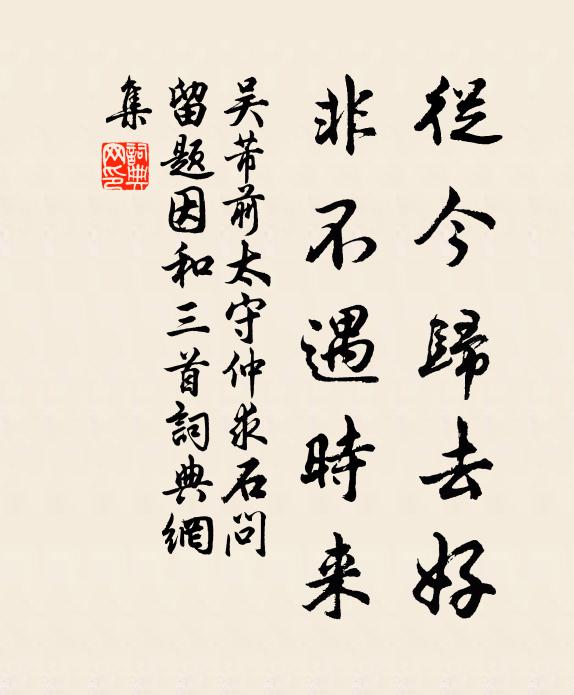 從今歸去好
非不遇時来
吴芾前太守仲求石問
留題因和三首詞典網
集
詞典
网印